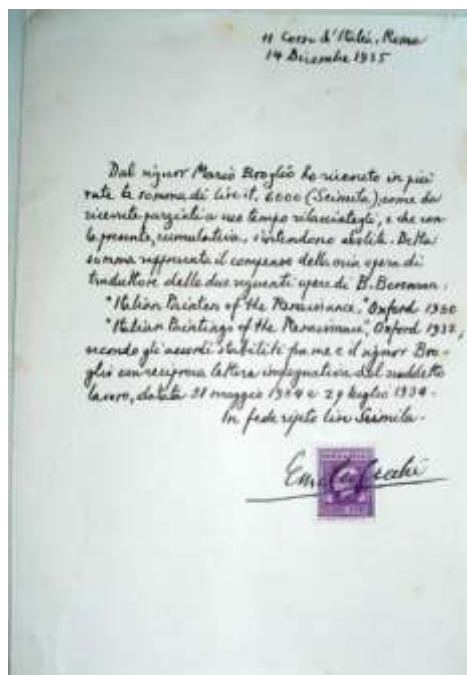 11 Corso d'Italia. Roma
14 Dicembre 1935
Dal signor Mario Broglio ho ricevuto in più
rate la somma di lire it. 6000 (Seimila), come da
ricevute parziali a suo tempo rilasciategli, e che con
la presente, cumulativa, s'intendono abolite. Detta
somma rappresenta il compenso della mia opera di
traduttore delle due seguenti opere di B. Berenson:
"Italian Painters of the Renaissance," Oxford 1930
"Italian Paintings of the Renaissance," Oxford 1932,
secondo gli accordi stabiliti fra me e il signor Bro-
glio con reciproca lettera impegnativa del suddetto
lavoro, datata 31 maggio 1934 e 29 luglio 1934.
In fede ripeto lire Seimila.
Emilio Cecchi